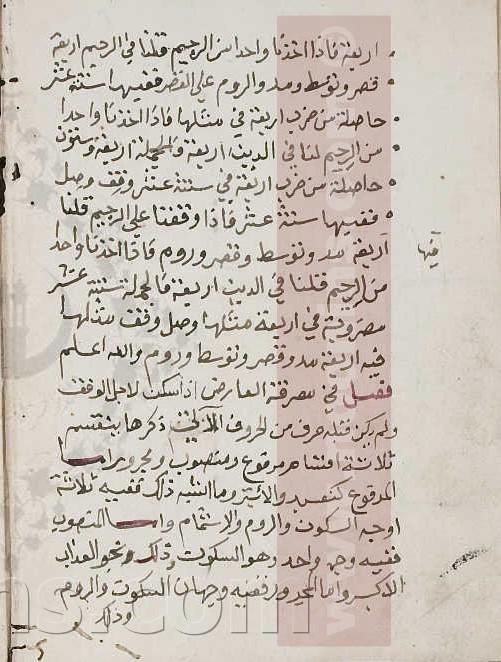 اربعة فاذا اخذنا واحدا من الرحيم قلنا في الرحيم اربعة
قصر وتوسط ومد والروم علي القصر ففيها ستة عشر
حاصلة من ضرب اربعة في مثلها فاذا اخذنا واحدا
من الرحيم لنا في الدين اربعة والجملة اربعة وستون
حاصلة من ضرب اربعة في ستة عشر وقف وصل
ففيها ستة عشر فاذا وقفنا علي الرحيم قلنا
اربعة مد وتوسط وقصر وروم فاذا اخذنا واحدا
من الرحيم قلنا في الدين اربعة فالجملة ستة عشر
مضروبة في اربعة مثلها وصل وقف مثلها
فيه اربعة مد وقصر وتوسط وروم والله اعلم
فصل في معرفة العارض اذا سكن لاجل الوقف
ولم يكن قبله حرف من الحروف ذكرها ينقسم
ثلاثة اقسام مرفوع ومنصوب ومجرور اما
المرفوع كنعبد وما اشبه ذلك ففيه ثلاثة
اوجه السكون والروم والاشمام واما المنصوب
ففيه وجه واحد وهو السكون وذلك نحو العذاب
الاكبر واما المجرور ففيه وجهان السكون والروم
وذلك
فيها